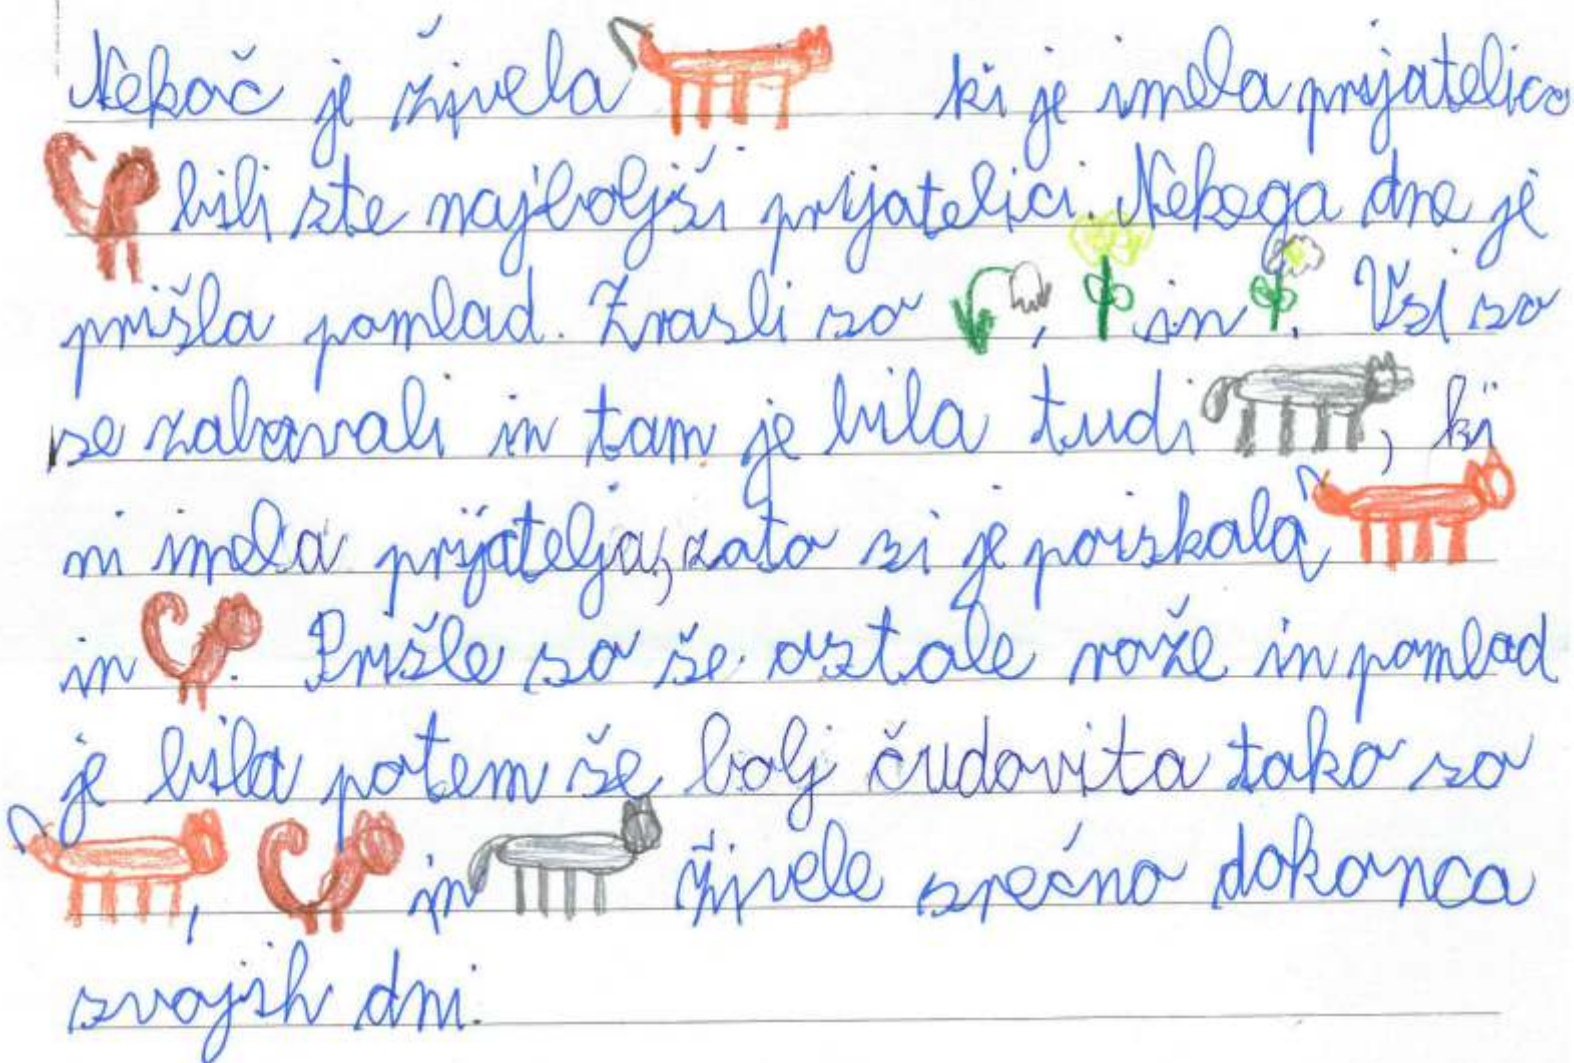 Nekoč je živela ki je imela prijatelico
bili ste najboljši prijatelici. Nekega dne je
prišla pomlad. Zrasli so , in . Vsi so
se zabavali in tam je bila tudi , ki
ni imela prijatelja, zato si je poiskala
in . Prišle so še ostale rože in pomlad
je bila potem še bolj čudovita tako so
, in živele srečno dokonca
svojih dni.